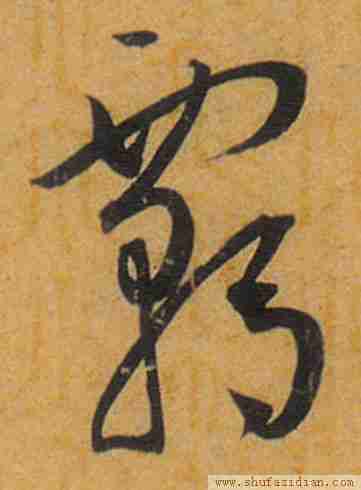 覊
www.shufazidian.com